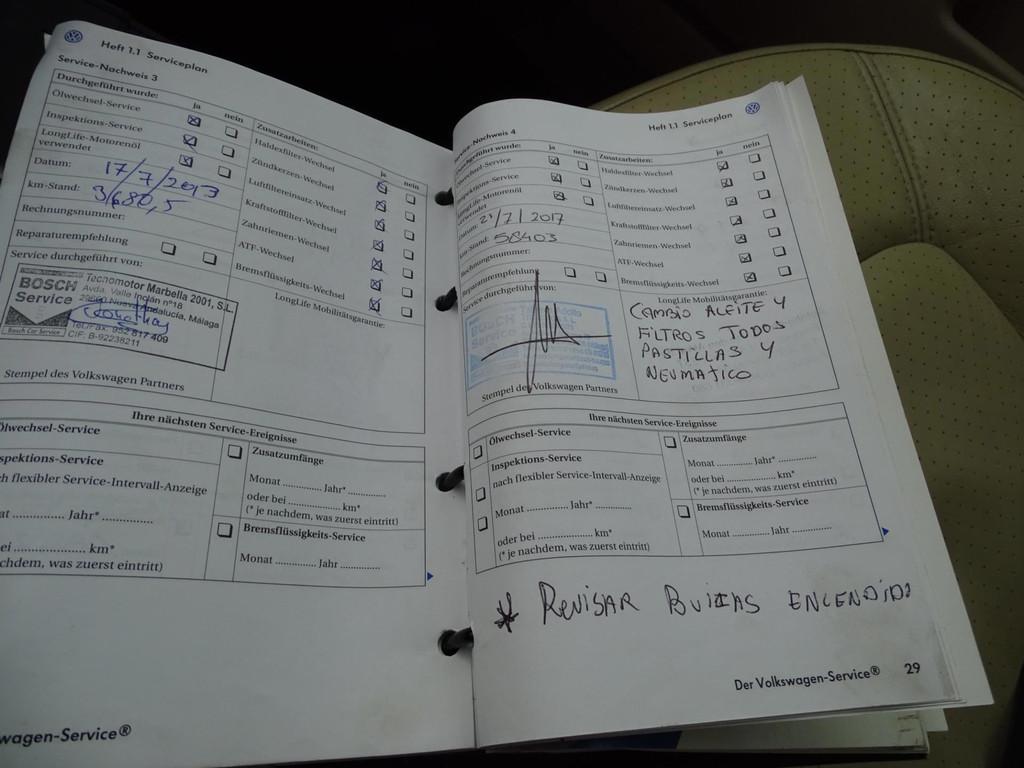 Heft 1.1 Serviceplan
Service-Nachweis 3
Durchgeführt wurde: ja nein
Ölwechsel-Service
Inspektions-Service
LongLife-Motorenöl
verwendet
Datum: 17/7/2013
km-Stand: 31680,5
Rechnungsnummer:
Reparaturempfehlung
Service durchgeführt von:
BOSCH
Service
Bosch Car Service
Tecnomotor Marbella 2001, S.L
Avda. Valle Inclán nº18
Andalucía, Málaga
952 817 409
CIF: B-92238211
Stempel des Volkswagen Partners
Zusatzarbeiten: ja nein
Haldexfilter-Wechsel
Zündkerzen-Wechsel
Luftfiltereinsatz-Wechsel
Kraftstofffilter-Wechsel
Zahnriemen-Wechsel
ATF-Wechsel
Bremsflüssigkeits-Wechsel
LongLife Mobilitätsgarantie:
Ihre nächsten Service-Ereignisse
Ölwechsel-Service
spektions-Service
ch flexibler Service-Intervall-Anzeige
at ............. Jahr* ...............
ei ..................... km*
chdem, was zuerst eintritt)
Zusatzumfänge
Monat ............ Jahr* ............
oder bei ................ km*
(* je nachdem, was zuerst eintritt)
Bremsflüssigkeits-Service
Monat ............ Jahr ............
wagen-Service®
Heft 1.1 Serviceplan
Service-Nachweis 4
Durchgeführt wurde: ja nein
Ölwechsel-Service
Inspektions-Service
LongLife-Motorenöl
verwendet
Datum: /7/2017
km-Stand: 58403
Rechnungsnummer:
Reparaturempfehlung
Service durchgeführt von:
BOSCH
Stempel des Volkswagen Partners
Zusatzarbeiten: ja nein
Haldexfilter-Wechsel
Zündkerzen-Wechsel
Luftfiltereinsatz-Wechsel
Kraftstofffilter-Wechsel
Zahnriemen-Wechsel
ATF-Wechsel
Bremsflüssigkeits-Wechsel
LongLife Mobilitätsgarantie:
CAMBIO ACEITE Y
FILTROS TODOS
PASTILLAS Y
NEUMATICO
Ihre nächsten Service-Ereignisse
Ölwechsel-Service
Inspektions-Service
nach flexibler Service-Intervall-Anzeige
Monat ............ Jahr* ............
oder bei ................ km*
(* je nachdem, was zuerst eintritt)
Zusatzumfänge
Monat ............ Jahr* ............
oder bei ................ km*
(* je nachdem, was zuerst eintritt)
Bremsflüssigkeits-Service
Monat ............ Jahr ............
* REVISAR BUJIAS ENCENDIDO
Der Volkswagen-Service® 29